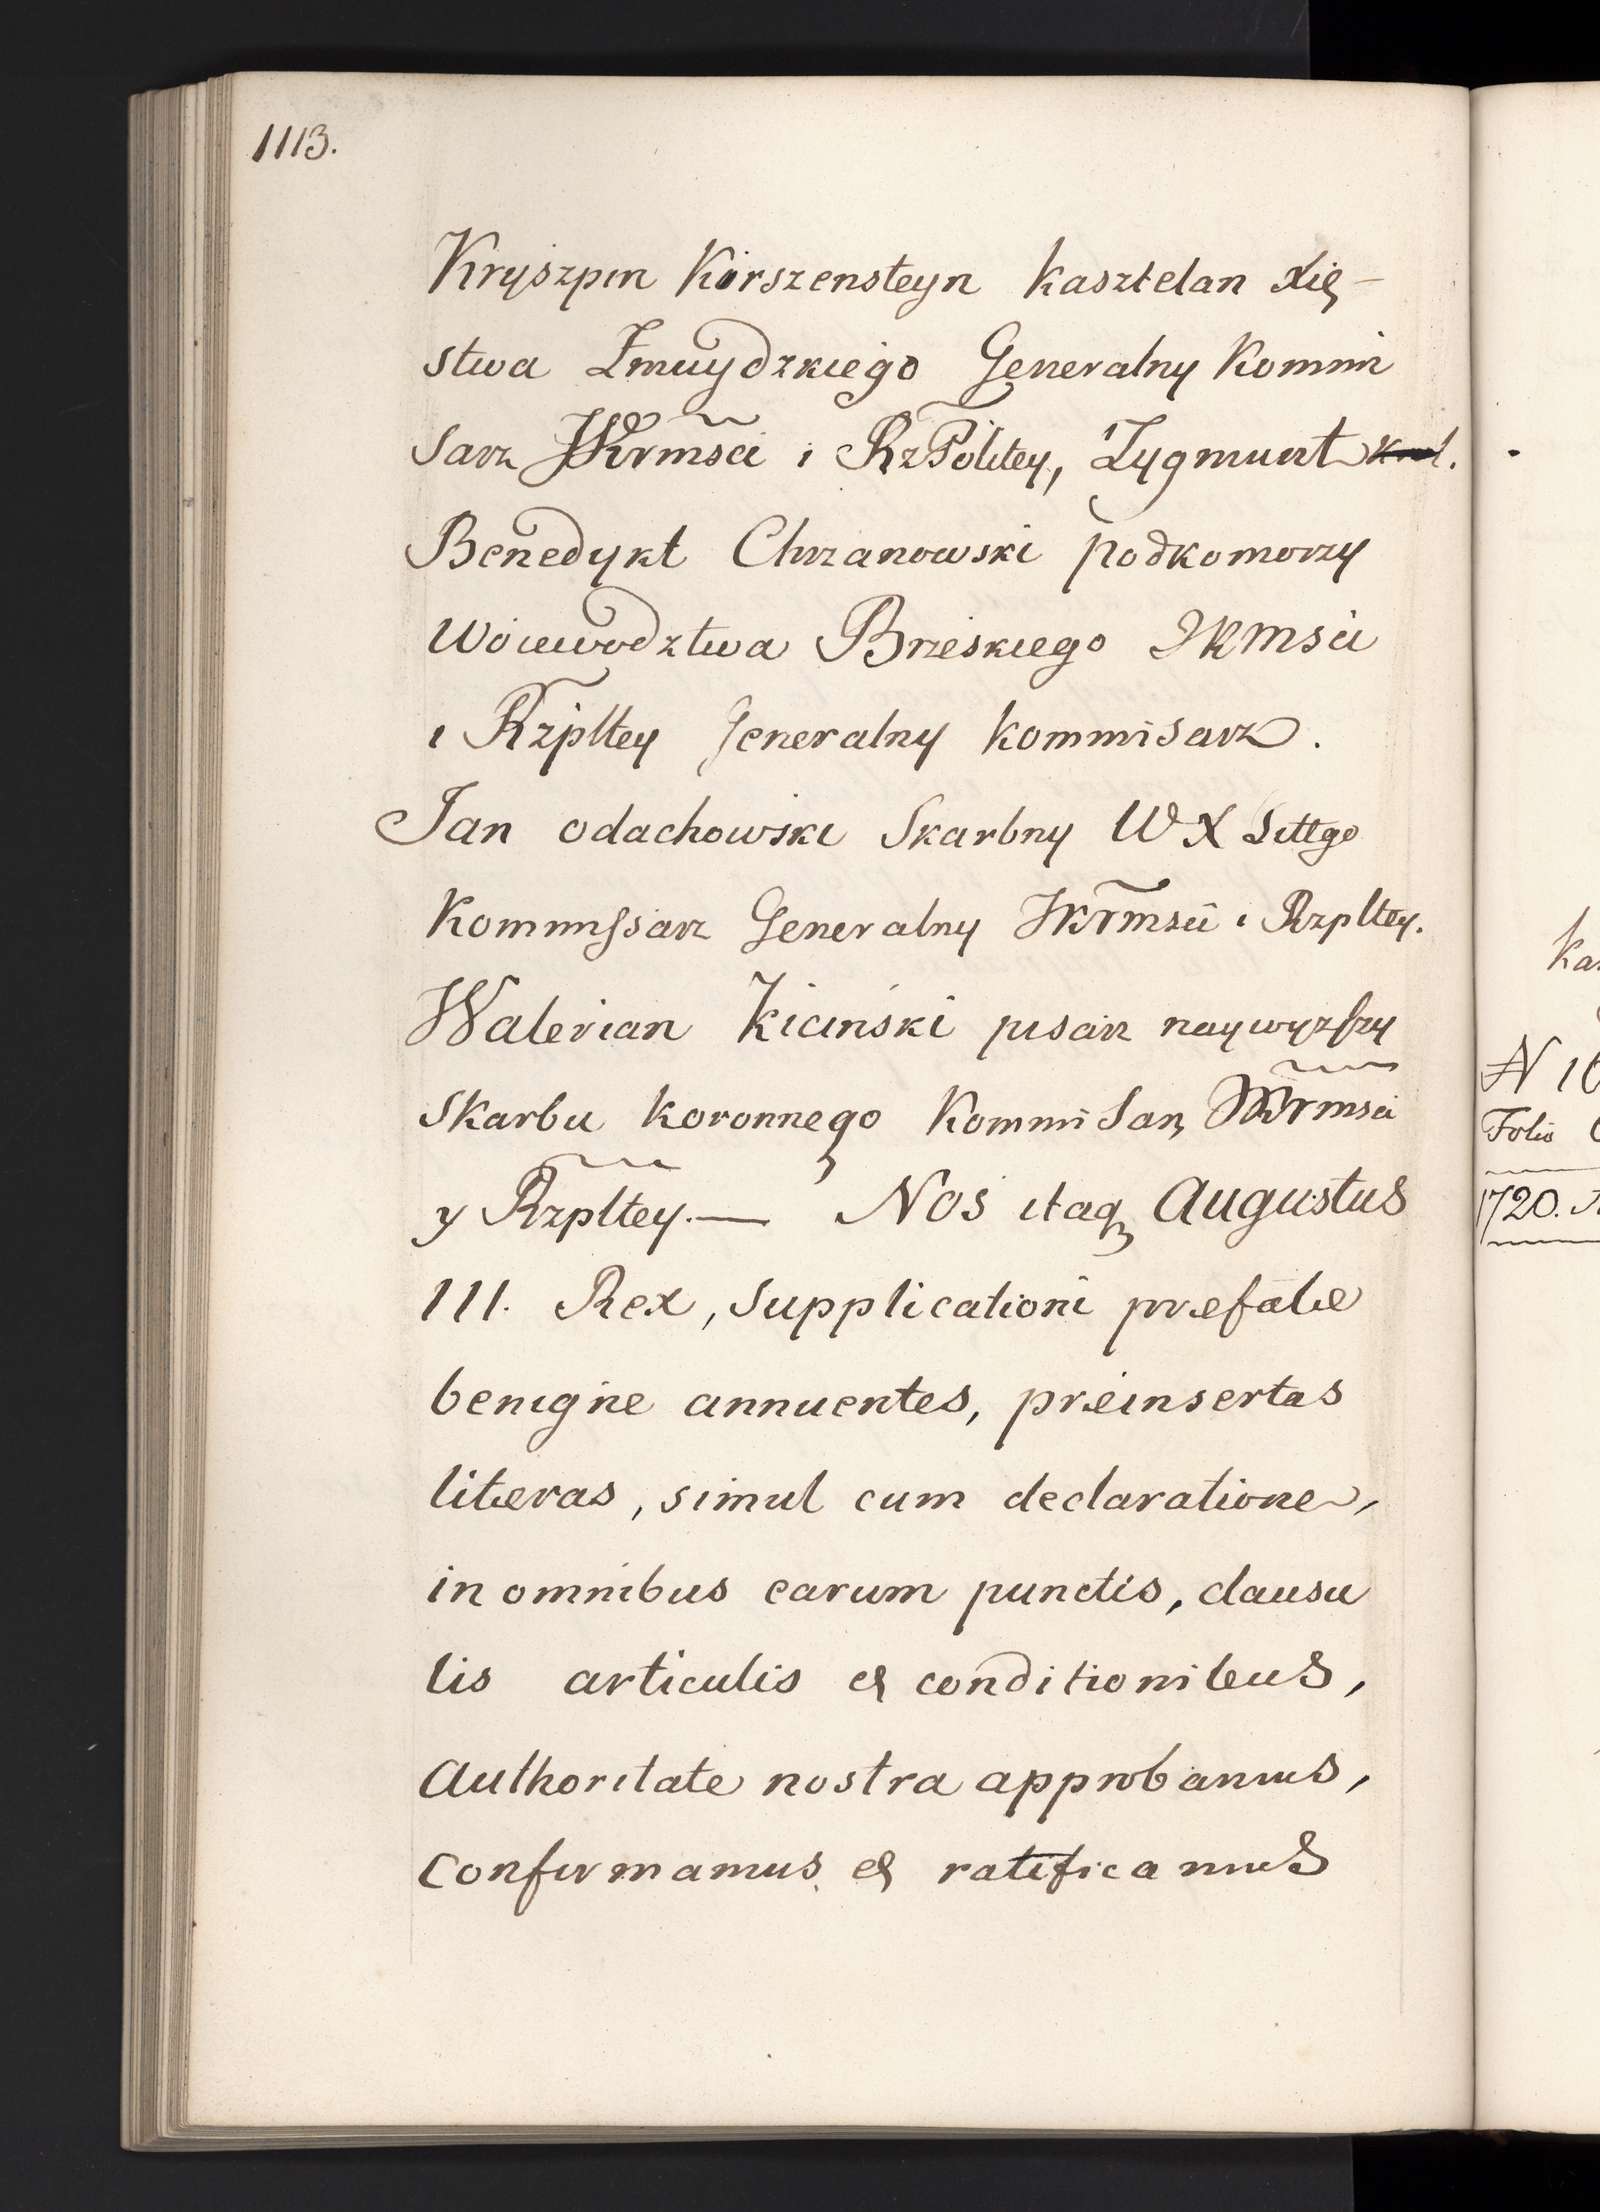 1113.
Kryszpin Kirszensteyn kasztelan Xię-
stwa Żmuydzkiego Generalny Kommi
sarz JKrmsci i RzPoltey, Zygmunt
Benedykt Chrzanowski podkomorzy
Woiewodztwa Brzeskiego JKMsci
i Rzpltey Generalny kommisarz.
Jan Odachowski Skarbny W X Littgo
Kommissarz Generalny JKrmsci i Rzpltey.
Walerian Kiciński pisarz naywyzszy
Skarbu koronnego Kommisarz JKrmsci
y Rzpltey.— Nos itaq Augustus
III. Rex, supplicationi præfatæ
benigne annuentes, præinsertas
literas, simul cum declaratione,
in omnibus earum punctis, clausu
lis articulis et conditionibus,
Authoritate nostra approbamus,
Confirmamus et ratificamus
Ka
N 16
Folio
1720.